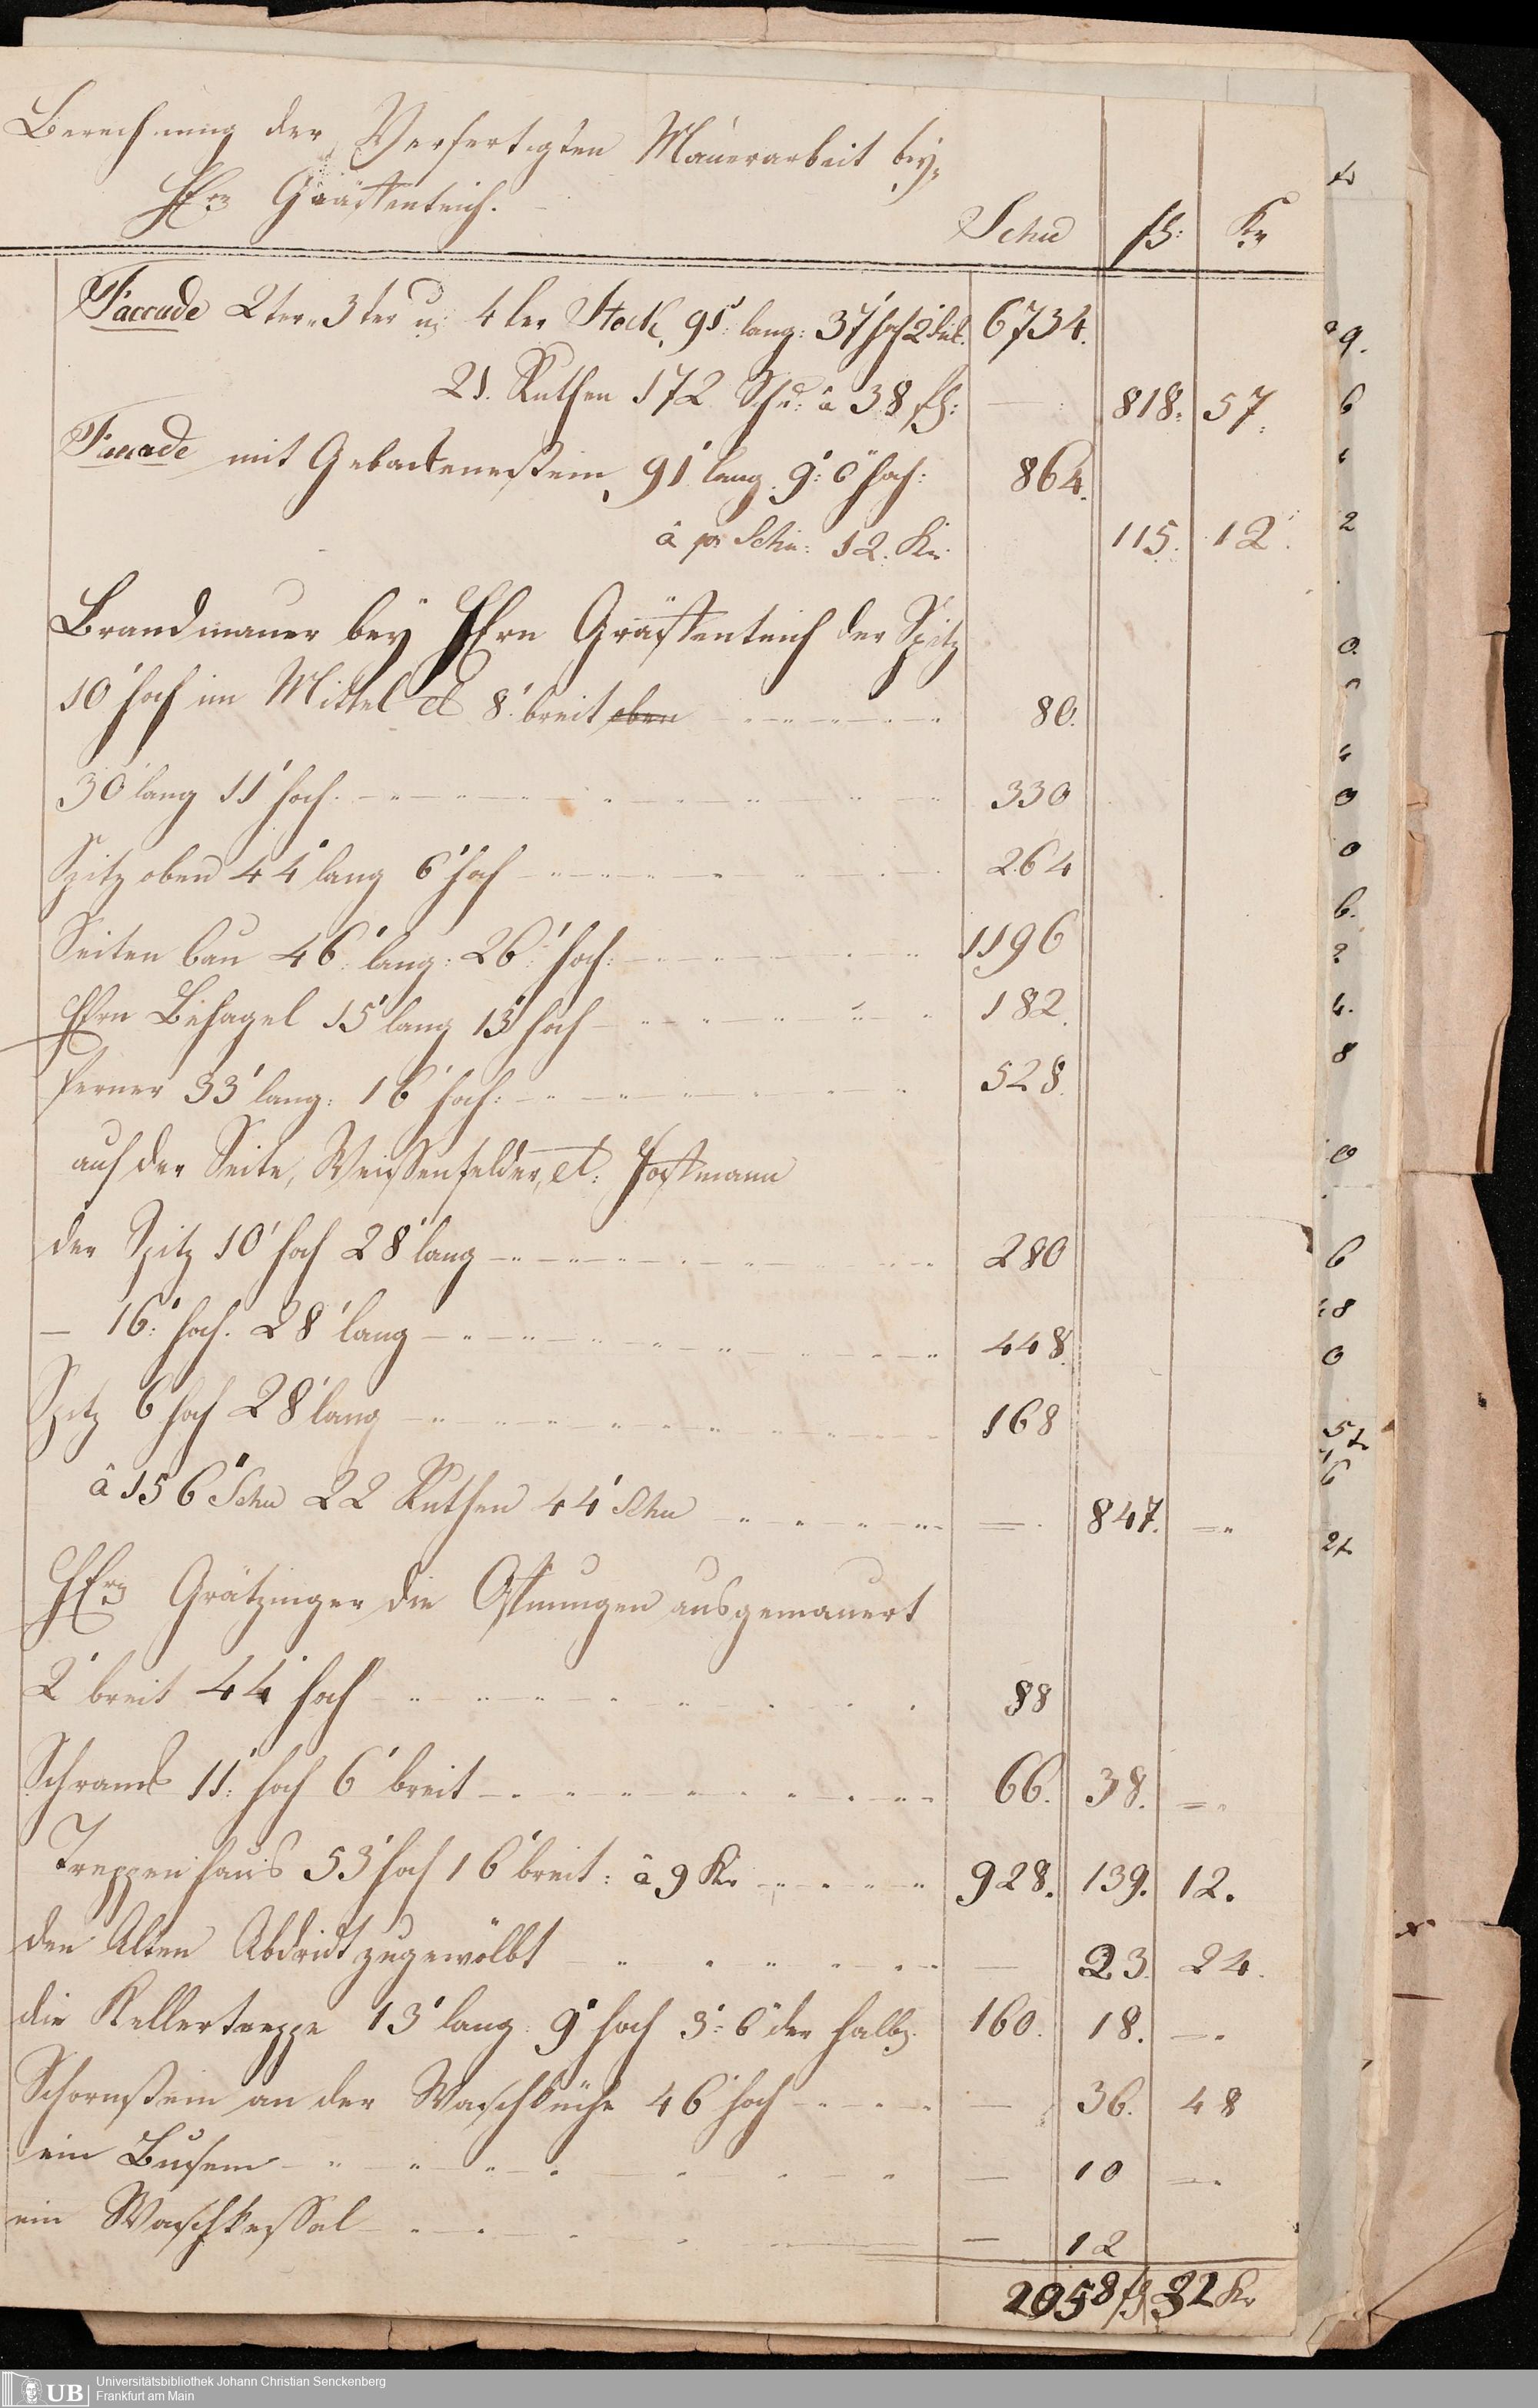 Berechnung der Verfertigten Mauerarbeit bey,
HErn Grästenteich.
Schu fl: Kr
Faccade 2ter 3ter u: 4ter Stock, 91' lang: 37' hoch 2 6734.
21. Ruthen 172 Sch: â 38 fl: 818. 57.
Facade mit Gebackenerstein, 91' lang. 9': 6" hoch: 864.
â pr Schu: 12. Kr. 115. 12.
Brandmauer bey HErn Grästenteich der Spitz
10' hoch im Mittel et 8' breit oben 80.
30' lang 11' hoch 330
Spitz oben 44' lang 6' hoch 264
Seiten bau 46' lang: 26' hoch: 1196
HErn Behagel 15' lang 13' hoch 182.
ferner 33' lang: 16' hoch: 528.
auf der Seite, Weissenfelder, et: Jostmann
der Spitz 10' hoch 28' lang 280
— 16' hoch. 28' lang 448.
Spitz 6 hoch 28' lang 168
â 156' Schu 22 Ruthen 44' Schu 847.
HErn Grätzinger die Öffnungen ausgemauert
2' breit 44' hoch 88
Schrank 11' hoch 6' breit 66. 38.
Treppenhaus 53' hoch 16' breit: â 9 Kr 928. 139. 12.
den Alten Abdritt zugewölbt 23. 24.
die Kellertreppe 13' lang: 9' hoch 3': 6" der halbz. 160. 18.
Schornstein an der Waschküche 46' hoch 36. 48
ein Busem 10
ein Waschkessel 12
2058 fl 32 Kr
UB Universitätsbibliothek Johann Christian Senckenberg
Frankfurt am Main